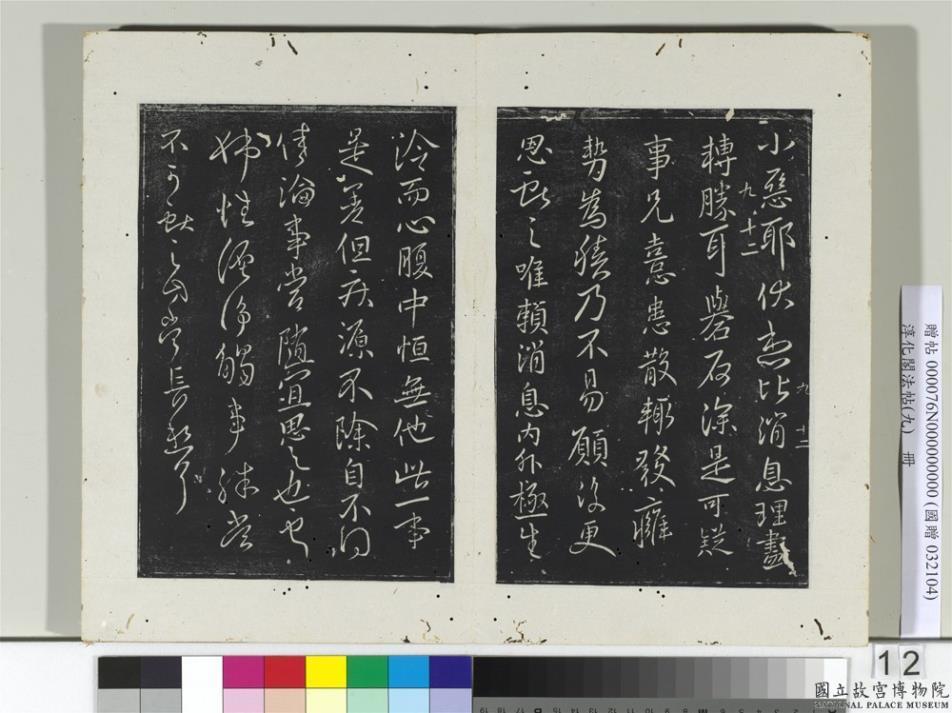 小惡耶伏想比消息理盡
轉勝耳礜石深是可疑
事兄憙患散輒發癰
為積乃不易願復更
思獻之唯賴消息內外極生
冷而心腹中恒無他此一事
是差但疾源不除自不得
佳論事當隨宜思之也
姊性觸事殊當
不可獻之
九 十二
九 十二
贈帖 000076N000000000 (國贈 032104)
淳化閣法帖(九) 冊
12
國立故宮博物院
NATIONAL PALACE MUSEUM